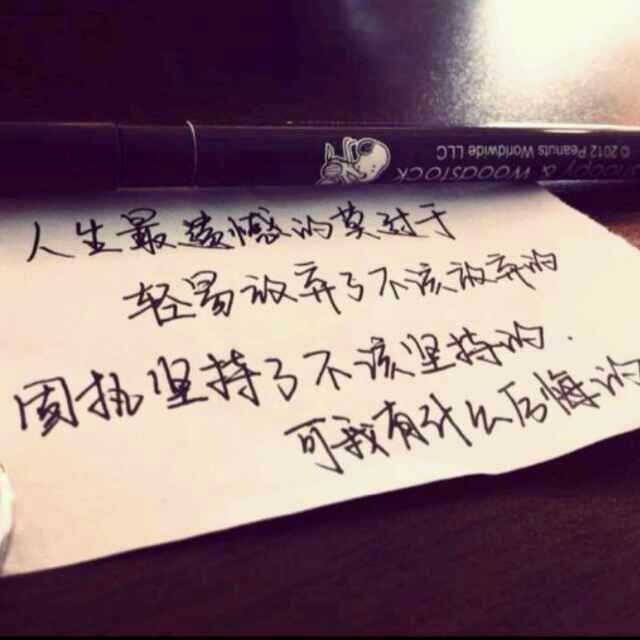 © 2012 Peanuts Worldwide LLC
Snoopy & WOODSTOCK
人生最遗憾的莫过于
轻易放弃了不该放弃的
固执坚持了不该坚持的.
可我有什么后悔的